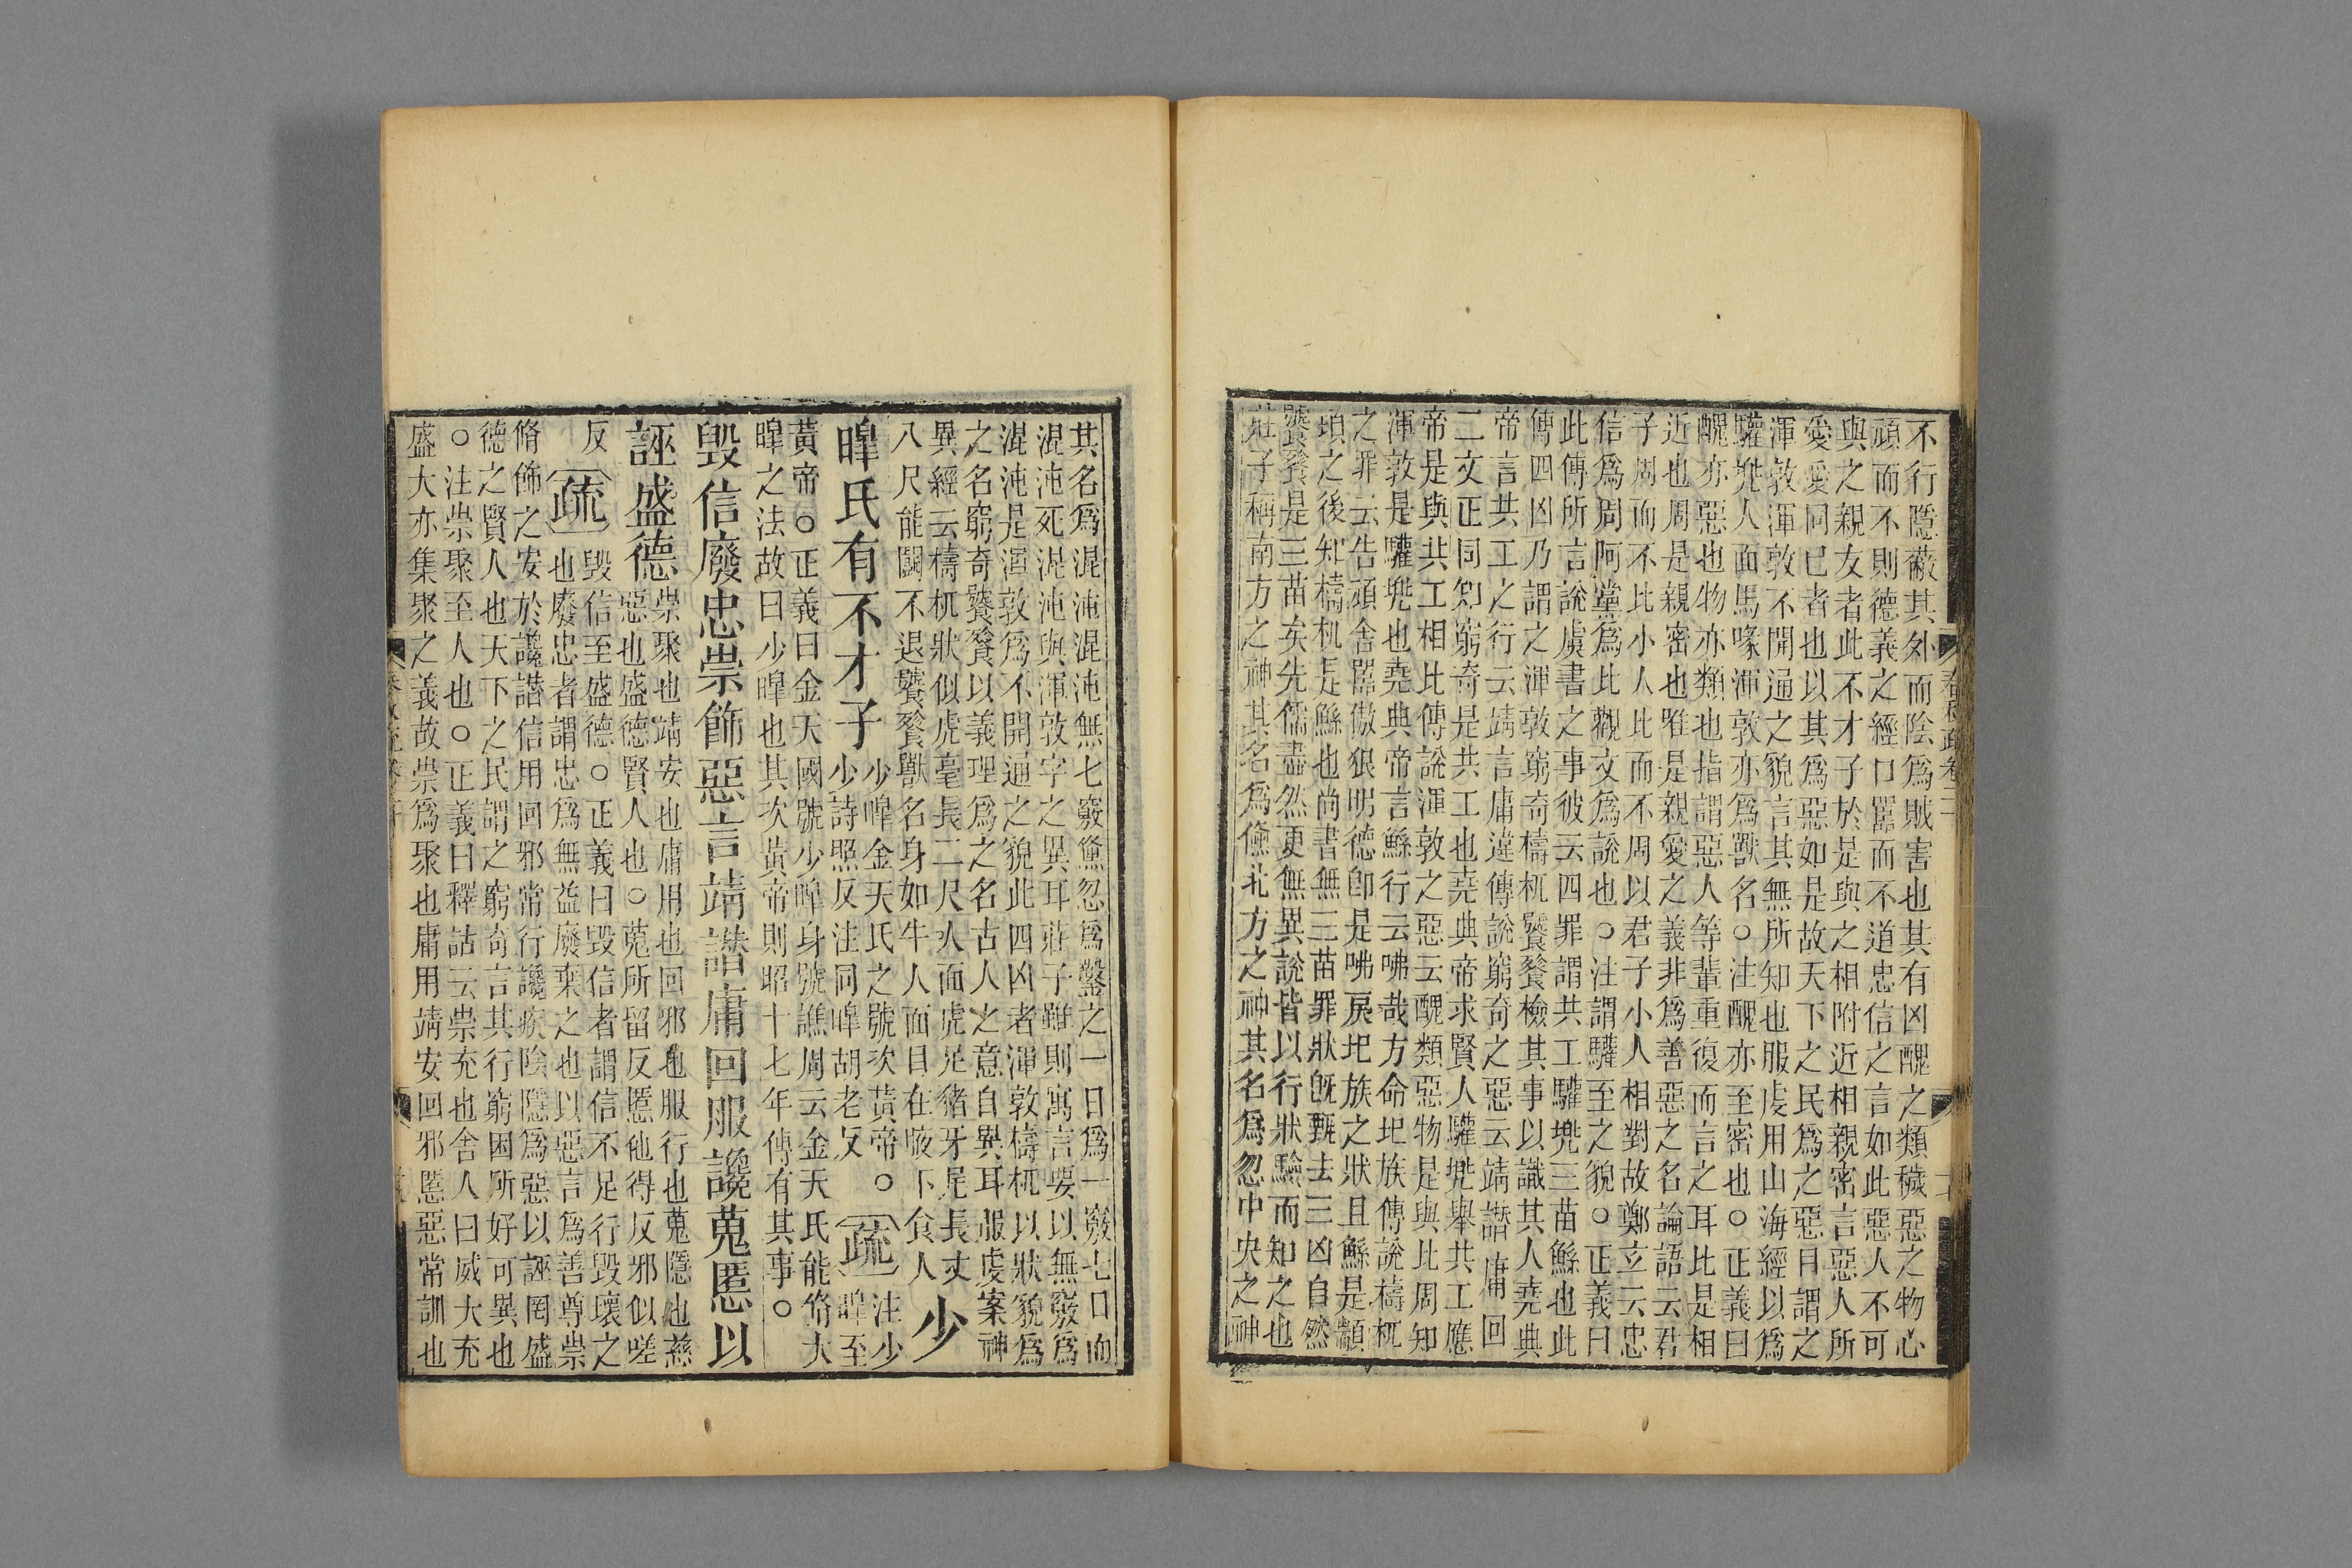 不行隱蔽其外而陰爲賊害也其有凶醜之類穢惡之物心
頑而不則德義之經口嚚而不道忠信之言如此惡人不可
與之親友者此不才子於是與之相附近相親密言惡人所
愛愛同巳者也以其爲惡如是故天下之民爲之惡目謂之
渾敦渾敦不開通之貌言其無所知也服虔用山海經以爲
驩兜人面馬喙渾敦亦爲獸名○注醜亦至密也○正義曰
醜亦惡也物亦類也指謂惡人等輩重復而言之耳比是相
近也周是親密也唯是親愛之義非爲善惡之名論語云君
子周而不比小人比而不周以君子小人相對故鄭立云忠
信爲周阿黨爲比觀文爲說也○注謂驩至之貌○正義曰
此傳所言說虞書之事彼云四罪謂共工驩兜三苗鯀也此
傳四凶乃謂之渾敦窮奇檮杌饕餮檢其事以識其人堯典
帝言共工之行云靖言庸違傳說窮奇之惡云靖譖庸回
二文正同知窮奇是共工也堯典帝求賢人驩兜舉共工應
帝是與共工相比傳說渾敦之惡云醜類惡物是與比周知
渾敦是驩兜也堯典帝言鯀行云咈哉方命圯族傳說檮杌
之罪云告頑舍嚚傲狠明德卽是咈戾圯族之狀且鯀是顓
頊之後知檮杌是鯀也尚書無三苗罪狀旣甄去三凶自然
饕餮是三苗矣先儒盡然更無異說皆以行狀驗而知之也
莊子稱南方之神其名爲儵北方之神其名爲忽中央之神
其名爲混沌混沌無七竅儵忽爲鑿之一日爲一竅七日而
混沌死混沌與渾敦字之異耳莊子雖則寓言要以無竅爲
混沌是渾敦爲不開通之貌此四凶者渾敦檮杌以狀貌爲
之名窮奇饕餮以義理爲之名古人之意自異耳服虔案神
異經云檮杌狀似虎毫長二尺人面虎足猪牙尾長丈
八尺能鬪不退饕餮獸名身如牛人面目在腋下食人 少
皥氏有不才子 少皥金天氏之號次黃帝○少詩照反注同皥胡老反 疏 注少皥至
黃帝○正義曰金天國號少皥身號譙周云金天氏能脩大
皥之法故曰少皥也其次黃帝則昭十七年傳有其事○
毀信廢忠崇飾惡言靖譖庸回服讒蒐慝以
誣盛德 崇聚也靖安也庸用也回邪也服行也蒐隱也慝
惡也盛德賢人也○蒐所留反慝他得反邪似嗟
反 疏 毀信至盛德○正義曰毀信者謂信不足行毀壞之
也廢忠者謂忠爲無益廢棄之也以惡言爲善尊崇
脩飾之安於讒譖信用回邪常行讒疾陰隱爲惡以誣罔盛
德之賢人也天下之民謂之窮奇言其行窮困所好可異也
○注崇聚至人也○正義曰釋詁云崇充也舍人曰威大充
盛大亦集聚之義故崇爲聚也庸用靖安回邪慝惡常訓也